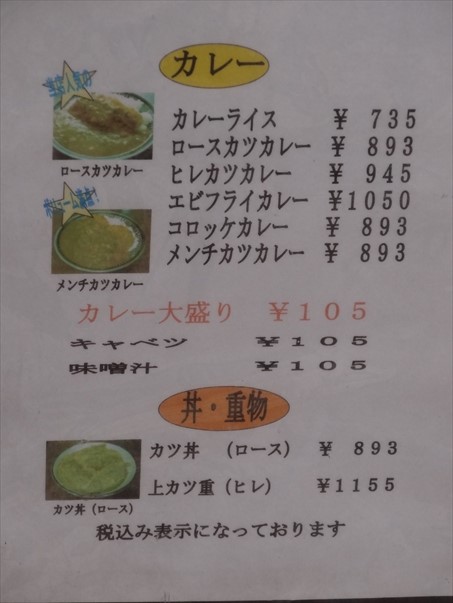 カレー
カレーライス ¥ 735
ロースカツカレー ¥ 893
ヒレカツカレー ¥ 945
エビフライカレー ¥1050
コロッケカレー ¥ 893
メンチカツカレー ¥ 893
ロースカツカレー
メンチカツカレー
カレー大盛り ¥105
キャベツ ¥105
味噌汁 ¥105
丼・重物
カツ丼 （ロース） ¥ 893
上カツ重（ヒレ） ¥1155
カツ丼（ロース）
税込み表示になっております